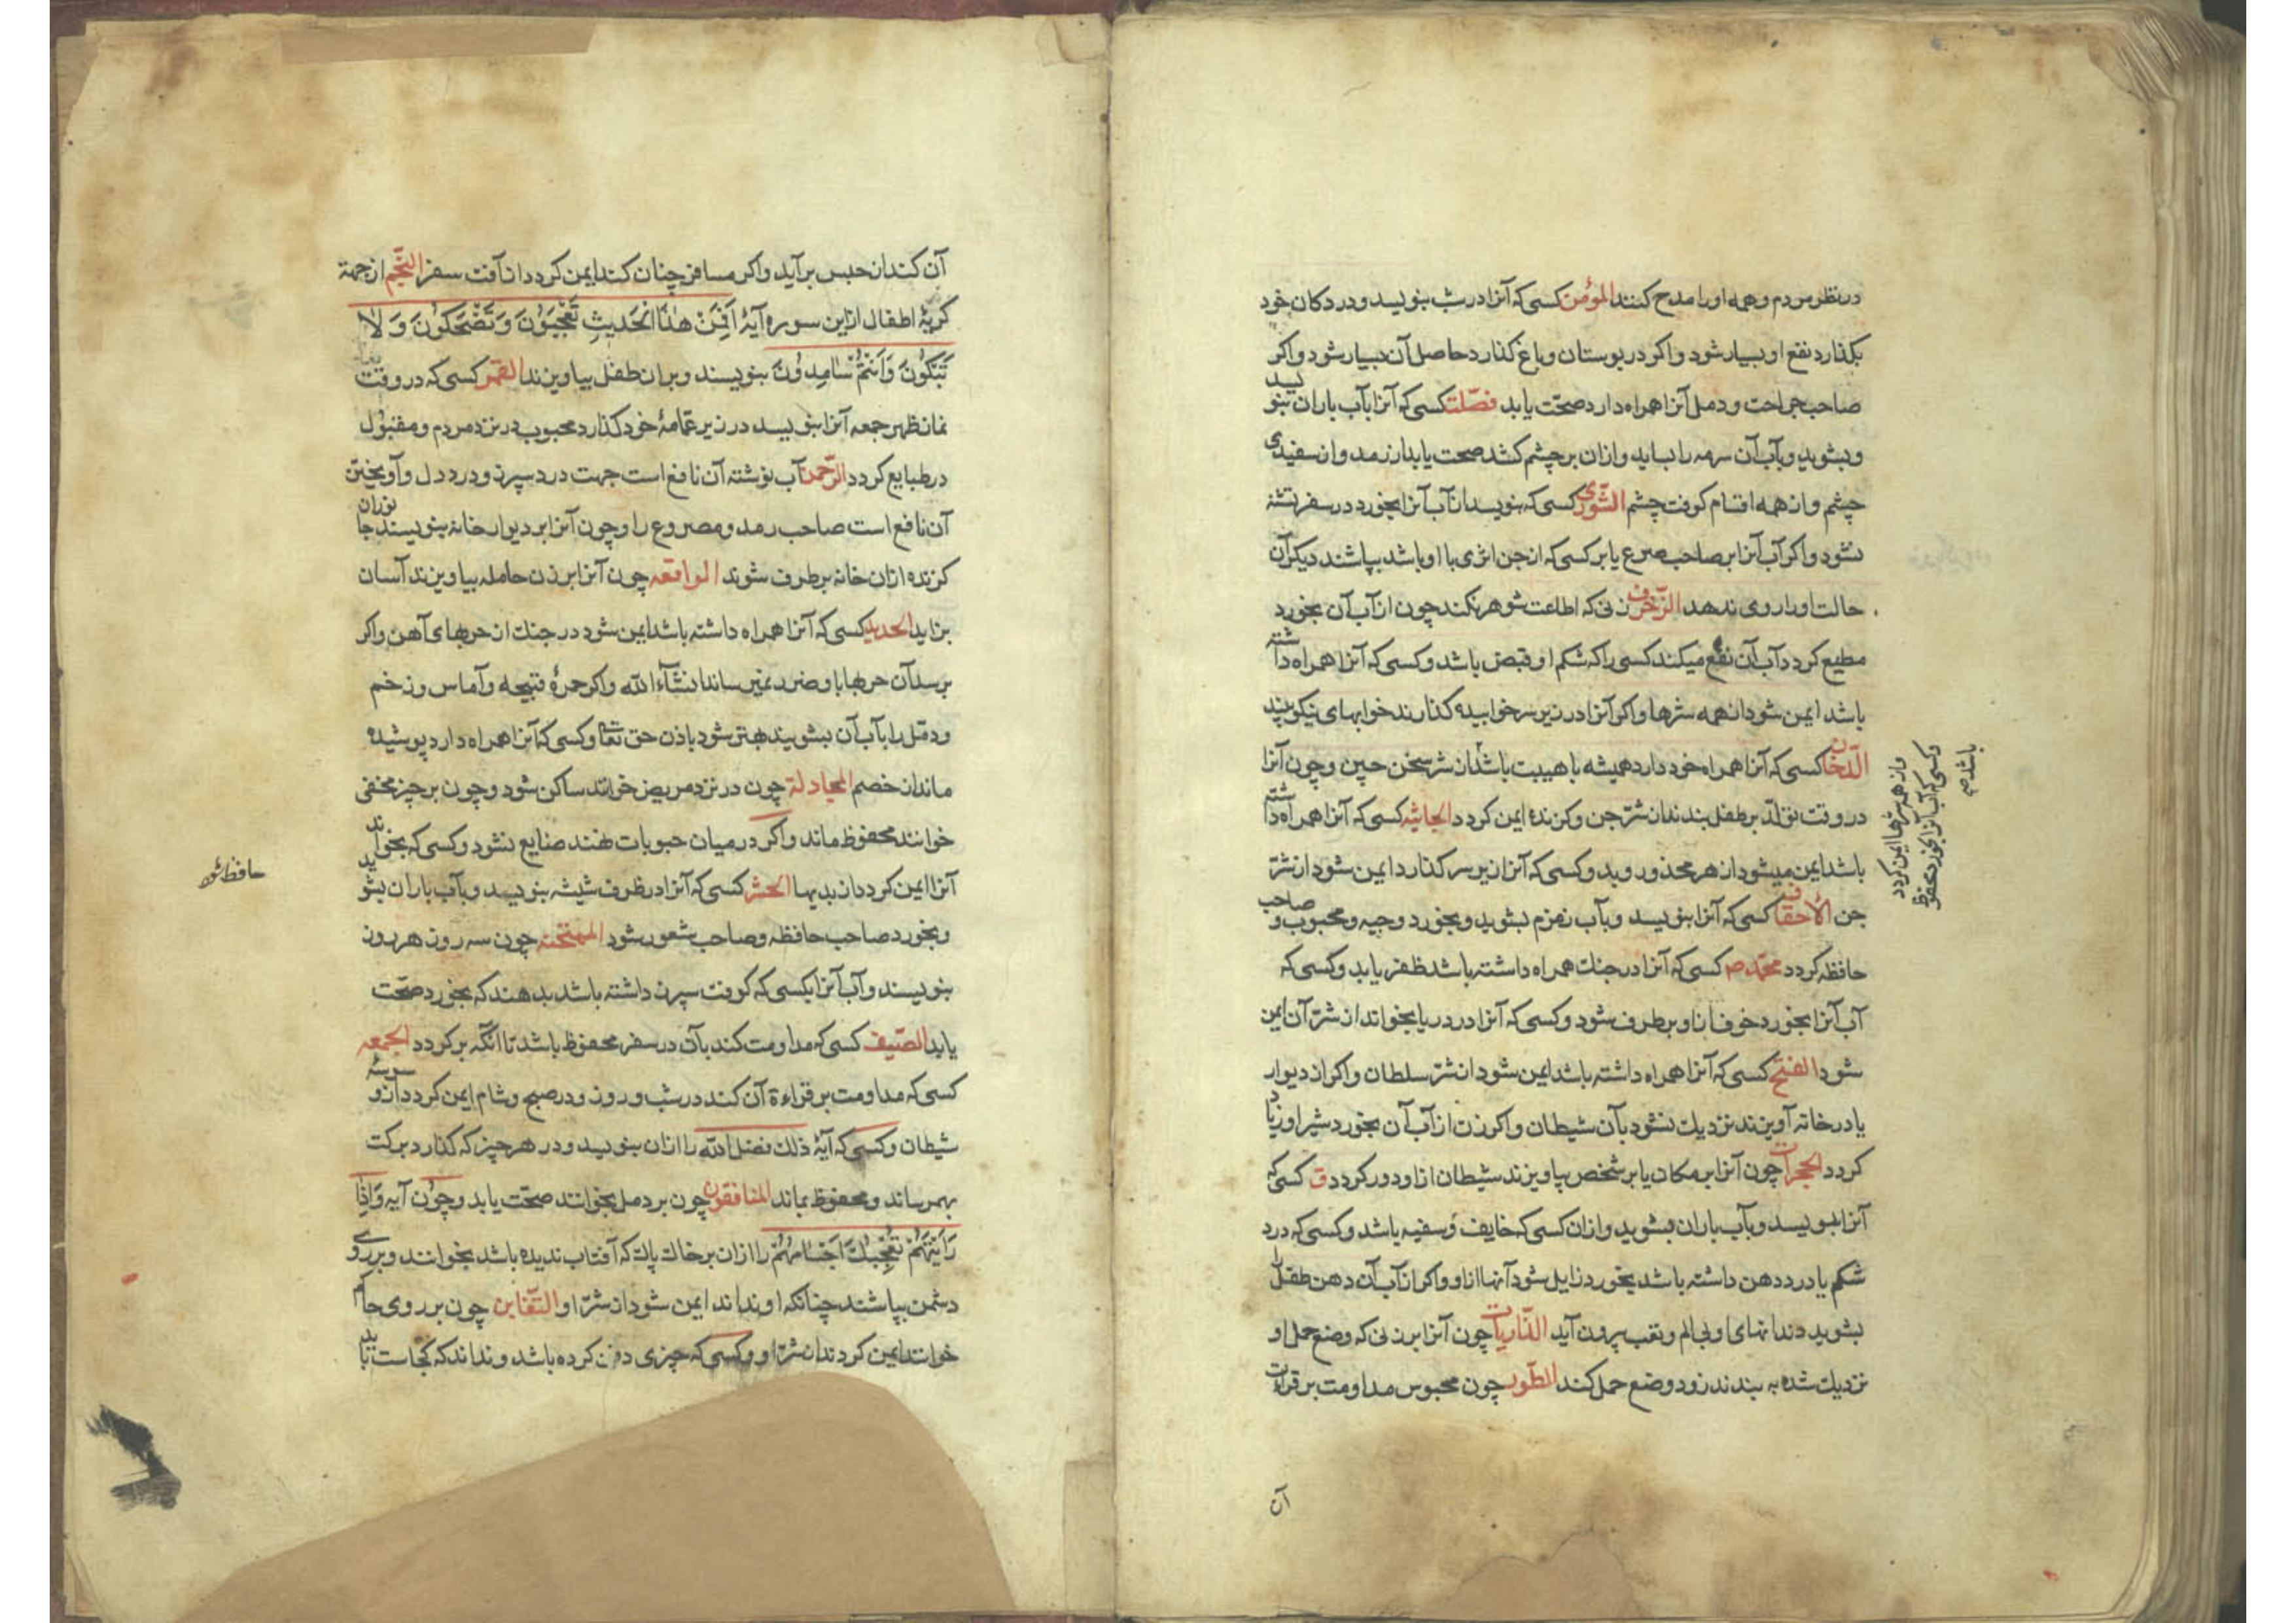 در نظر مردم و همه او را مدح کنند المؤمن کسی که آنرا در شب بنویسد و در دکان خود
بکذارد نفع او بسیار شود و اکر در بوستان و باغ کذارد حاصل آن بسیار شود و اکر
صاحب جراحت و دمل آنرا همراه دارد صحّت یابد فصّلت کسی که آنرا بآب باران بنویسد
و بشوید و بآب آن سرمه را بساید و ازان بر چشم کشد صحت یابد از رمد و از سفیدی
چشم و از همه اقسام کوفت چشم الشّوری کسی که بنویسد از آب آنرا بخورد در سفر تشنه
نشود و اکر آب آنرا بر صاحب صرع یا بر کسی که از جن اثری با او باشد بپاشند دیکر آن
حالت او را روی ندهد الزّخرف زنی که اطاعت شوهر نکند چون از آب آن بخورد
مطیع کردد آب آن نفع میکند کسی را که شکم او قبض باشد و کسی که آنرا همراه داشته
باشد ایمن شود از همه شرها و اکر آنرا در زیر سر خوابیده کذارند خوابهای نیکو بیند
الدّخان کسی که آنرا همراه خود دارد همیشه با هیبت باشد از شر سخن چین و چون آنرا
در وقت تولّد بر طفل بندند از شرّ جن و کزنده ایمن کردد الجاثیه کسی که آنرا همراه داشته
باشد ایمن میشود از هر محذور و بد و کسی که آنرا زیر سر کذارد ایمن شود از شرّ
جن الأحقاف کسی که آنرا بنویسد و بآب زمزم بشوید و بخورد وجیه و محبوب و صاحب
حافظه کردد محمّد ص کسی که آنرا در جنك همراه داشته باشد ظفر یابد و کسی که
آب آنرا بخورد خوف از او برطرف شود و کسی که آنرا در دریا بخواند از شرّ آن ایمن
شود الفتح کسی که آنرا همراه داشته باشد ایمن شود از شرّ سلطان و اکر از دیوار
یا در خانه آویزند نزدیك نشود بآن شیطان و اکر زن از آب آن بخورد شیر او زیاد
کردد الحجرات چون آنرا بر مکان یا بر شخص بیاویزند شیطان از او دور کردد ق کسی که
آنرا بنویسد و بآب باران بشوید و ازان کسی که خایف و سفیه باشد و کسی که درد
شکم یا درد دهن داشته باشد بخورد زایل شود آنها از او و اکر از آب آن دهن طفل را
بشوید دندانهای او بی الم و تعب بیرون آید الذّاریات چون آنرا بر زنی که وضع حمل او
نزدیك شده به بندند زود وضع حمل کند الطّور چون محبوس مداومت بر قراءت
آن
و از همه شرها ایمن کردد
و کسی که آب آنرا بخورد محفوظ
باشد صح
آن کند از حبس برآید و اکر مسافر چنان کند ایمن کردد از آفت سفر النّجم از جهة
کریهٔ اطفال ازین سوره آیهٔ اَفَمِنْ هٰذَا الْحَدیثِ تَعْجَبُونَ وَ تَضْحَکُونَ وَ لا
تَبْکُونَ وَ اَنْتُمْ سٰامِدُونَ بنویسند و بران طفل بیاویزند القمر کسی که در وقت
نماز ظهر جمعه آنرا بنویسد در زیر عمّامهٔ خود کذارد محبوب در نزد مردم و مقبول
در طبایع کردد الرّحمن آب نوشته آن نافع است جهت درد سپرز و درد دل و آویختن
آن نافع است صاحب رمد و مصروع را و چون آنرا بر دیوار خانه بنویسند جانوران
کزنده ازان خانه برطرف شوند الواقعه چون آنرا بر زن حامله بیاویزند آسان
بزاید الحدید کسی که آنرا همراه داشته باشد ایمن شود در جنك از حربهای آهن و اکر
برسد آن حربها باو ضرر نمیرساند انشآء الله و اکر حمرهٔ قبیحه و آماس و زخم
و دمّل را بآب آن بشویند بهتر شود باذن حق تعالی و کسی که آنرا همراه دارد پوشیده
ماند از خصم المجادلة چون در نزد مریض خوانند ساکن شود و چون بر چیز مخفی
خوانند محفوظ ماند و اکر در میان حبوبات نهند ضایع نشود و کسی که بخواند
آنرا ایمن کردد از بدیها الحشر کسی که آنرا در ظرف شیشه بنویسد و بآب باران بشوید
و بخورد صاحب حافظه و صاحب شعور شود الممتحنه چون سه روز هر روز
بنویسند و آب آنرا بکسی که کوفت سپرز داشته باشد بدهند که بخورد صحّت
یابد الصّف کسی که مداومت کند بآن در سفر محفوظ باشد تا آنکه برکردد الجمعه
کسی که مداومت بر قراءة آن کند در شب و روز و در صبح و شام ایمن کردد از وسوسهٔ
شیطان و کسی که آیهٔ ذلك فضل الله را ازان بنویسد و در هر چیز که کذارد برکت
بهمرساند و محفوظ بماند المنافقون چون بر دمل بخوانند صحّت یابد و چون آیه وَاِذٰا
رَاَیْتَهُمْ تُعْجِبُكَ اَجْسٰامُهُمْ را ازان بر خاك پاك که آفتاب ندیده باشد بخوانند و بر روی
دشمن بپاشند چنانکه او نداند ایمن شود از شرّ او التّغابن چون بر روی حاکم
خوانند ایمن کردند از شرّ او و کسی که چیزی دفن کرده باشد و نداند که کجاست
حافظ شود